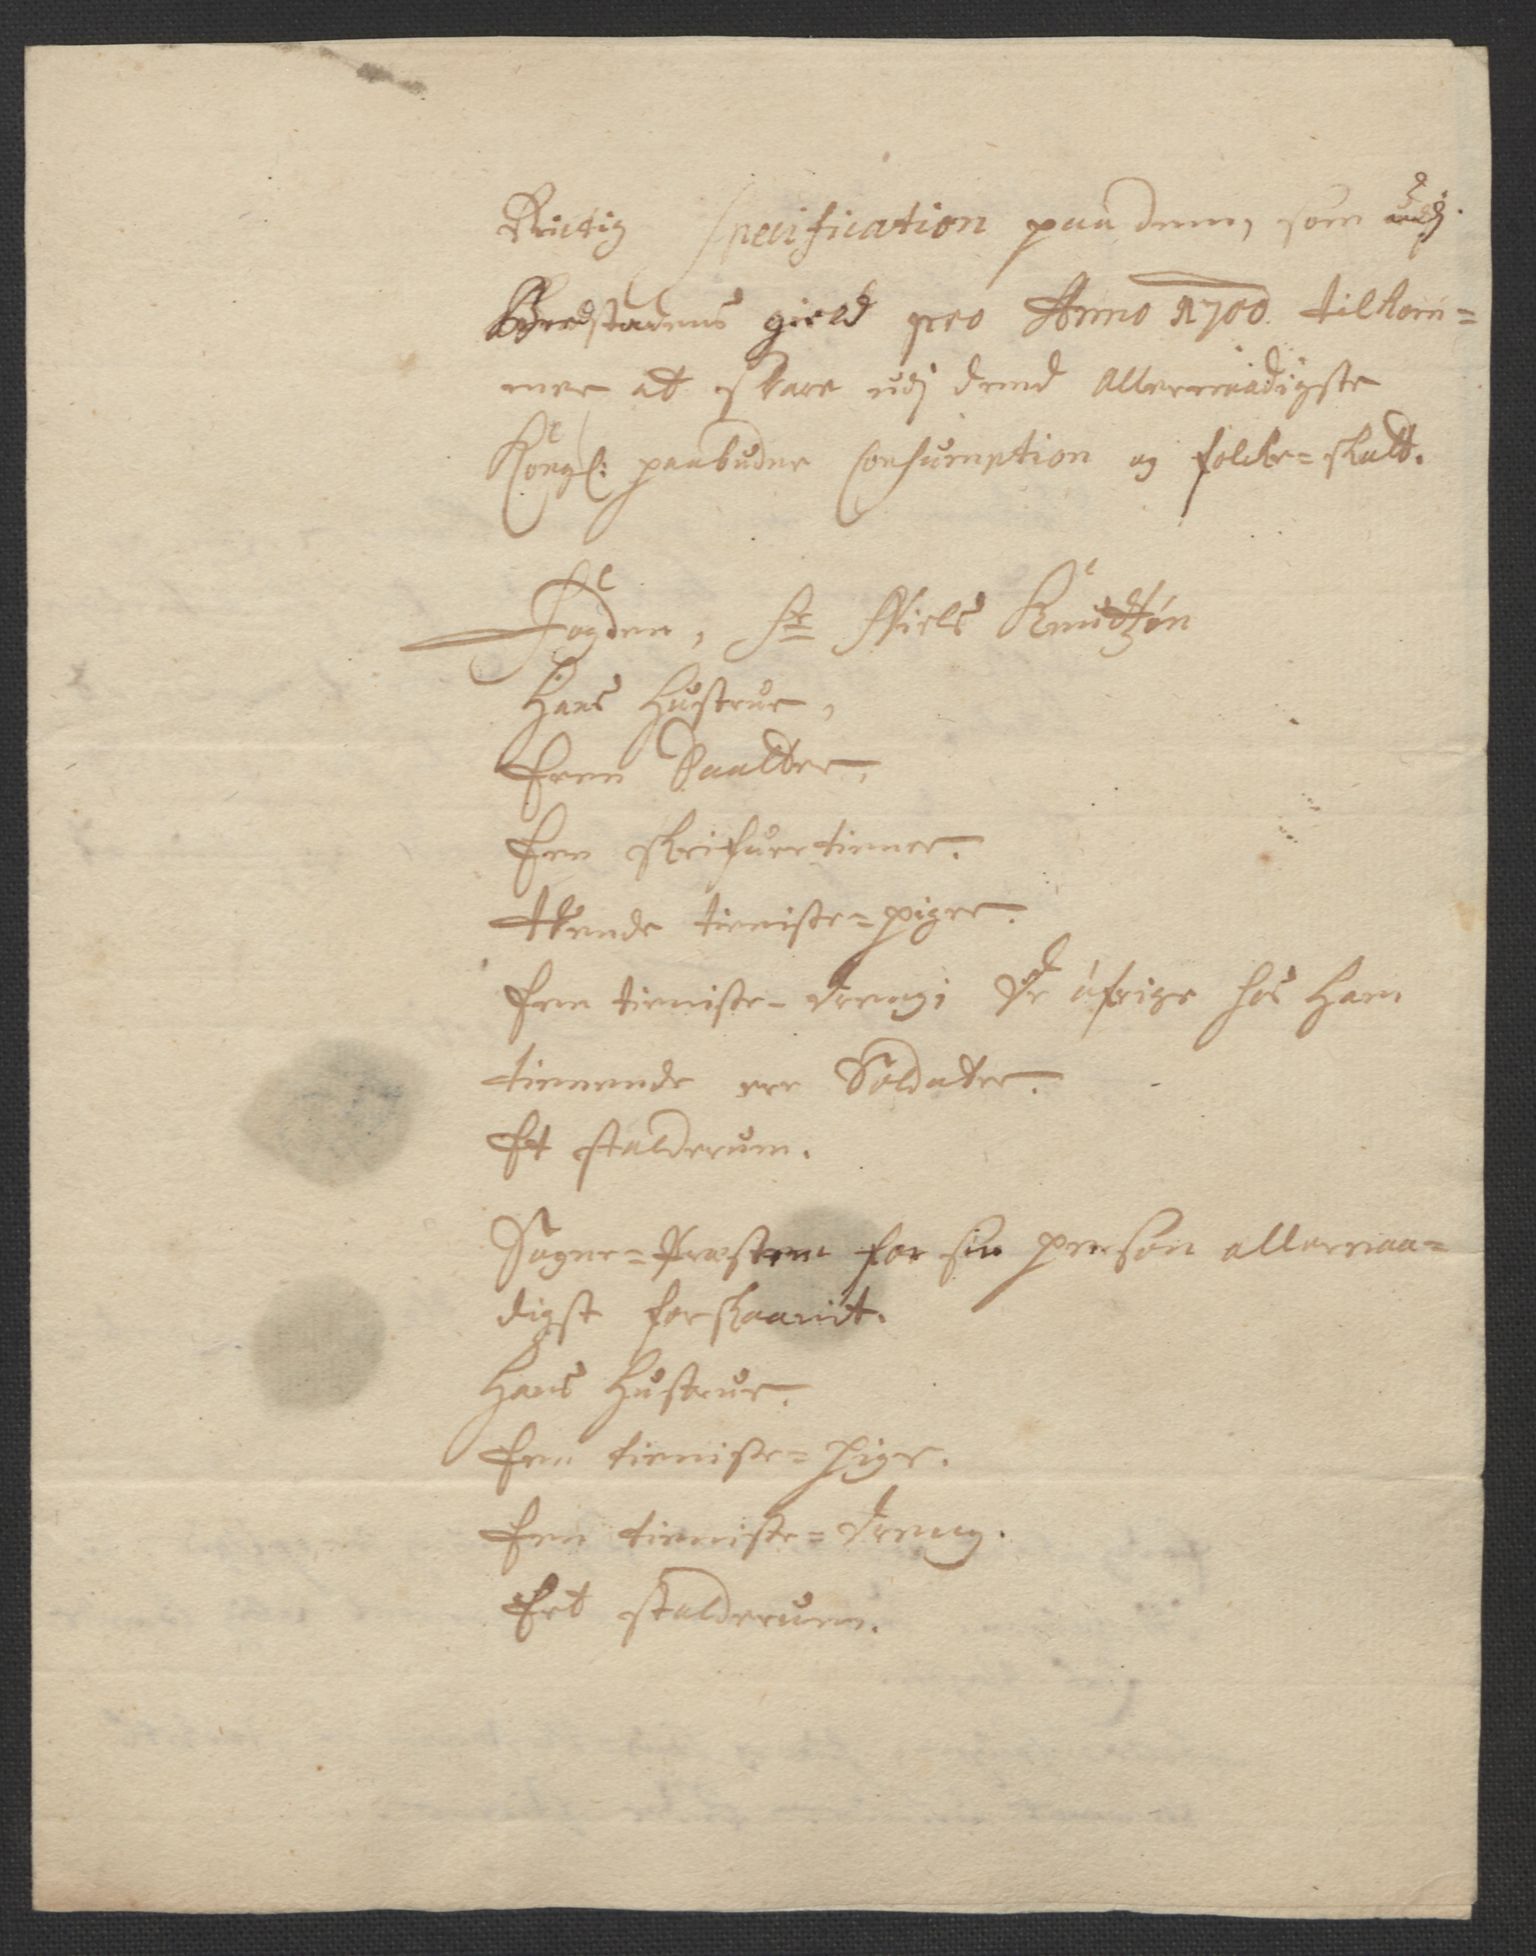 Rictig Specification paa dem, som udj
Byredstadens gield pro Anno 1700 tilkom=
mer at svare udj dend allernaadigste
Kongl: paabudne Consumption og folche=skatt.
Fogden, Sr Niels Knudtzøn
Hans Hustrue,
Een Daatter,
Een skrifuertiener.
Tvende tieniste=piger.
Een tieniste-dreng; De øfrige hos Ham
tienende ere Soldater.
Et stalderum.
Sogne=Præsten for sin person allernaa=
digst forskaanit.
Hans Hustrue.
Een tieniste=Pige.
Een tieniste=dreng.
Eet stalderum.